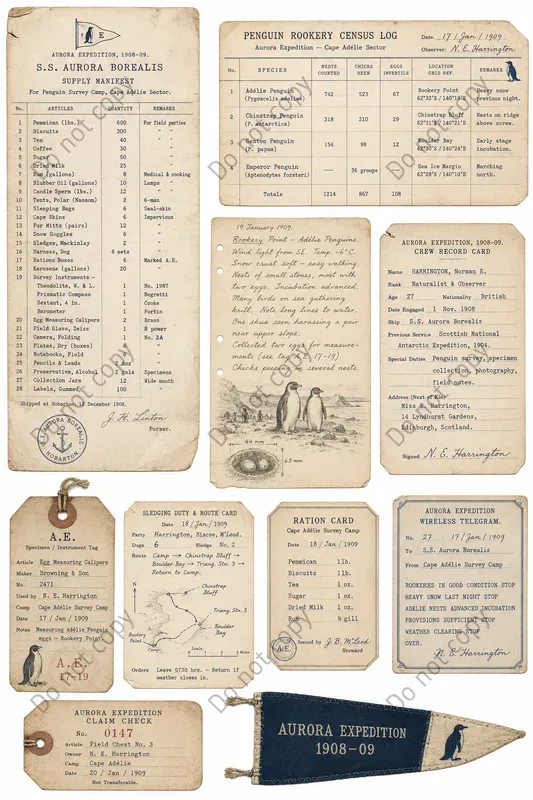 A E
AURORA EXPEDITION, 1908-09.
S.S. AURORA BOREALIS
SUPPLY MANIFEST
For Penguin Survey Camp, Cape Adélie Sector.
No. ARTICLES QUANTITY REMARKS
1 Pemmican (lbs.) 600 For field parties
2 Biscuits 300 "
3 Pemmican 40 "
4 Coffee 30 "
5 Sugar 50 "
6 Dried Milk 25 "
7 Rum (gallons) 8 Medical & cooking
8 Blubber Oil (gallons) 10 Lamps "
9 Candle Sperm (lbs.) 12 "
10 Tents, Polar (Nansom) 2 6-man
11 Sleeping Bags 6 Seal-skin
12 Cape Skins 6 Impervious
13 Fur Mitts (pairs) 12 "
14 Snow Goggles 6 "
15 Sledges, Mackinlay 2 "
16 Harness, Dog 6 sets "
17 Rations Boxes 6 Marked A.E.
18 Kerosene (gallons) 20 "
19 Survey Instruments—
Theodolite, W. & L. 1 No. 1987
Prismatic Compass 1 Negretti
Sextant, 4 in. 1 Cooke
Barometer 1 Fortin
20 Egg Measuring Calipers 2 Brass
21 Field Glass, Zeiss 1 8 power
22 Camera, Folding 1 No. 3A
23 Plates, Dry (boxes) "
24 Notebooks, Field "
25 Pencils & Leads 2 doz "
26 Preservative, Alcohol 2 gals Specimens
27 Collection Jars 12 Wide mouth
28 Labels, Gummed 100 "
Shipped at Hobarton, 12 December 1908.
J. H. Linton
Purser.
S.S. AURORA BOREALIS
HOBARTON
PENGUIN ROOKERY CENSUS LOG
Aurora Expedition – Cape Adélie Sector
Date. 17 / Jan / 1909
Observer: N. E. Harrington
No. SPECIES NESTS COUNTED CHICKS SEEN EGGS INFERTILE LOCATION GRID REF. REMARKS
1 Adélie Penguin (Pygoscelis adeliae) 742 523 67 Rookery Point 62°32'S / 140°19'E Heavy snow previous night.
2 Chinstrap Penguin (P. antarctica) 318 210 29 Chinstrap Bluff 62°31'S / 140°21'E Nests on ridge above scree.
3 Gentoo Penguin (P. papua) 154 98 12 Boulder Bay 62°30'S / 140°24'E Early stage incubation.
4 Emperor Penguin (Aptenodytes forsteri) — 36 groups Sea Ice Margin 62°28'S / 140°10'E Marching north.
Totals 1214 867 108
19 January 1909.
Rookery Point – Adélie Penguins.
Wind light from SE. Temp. –6°C.
Snow crust soft – easy walking.
Nests of small stones, most with
two eggs. Incubation advanced.
Many birds on sea gathering
krill. Note long lines to water.
One skua seen harassing a pair
near upper slope.
Collected two eggs for measure-
ments (see tag A.E. 17-19).
Chicks peeping in several nests.
94 mm
63
AURORA EXPEDITION, 1908-09.
CREW RECORD CARD
Name HARRINGTON, Norman E.
Rank Naturalist & Observer
Age 27 Nationality British
Date Engaged 1 Nov. 1908
Ship S.S. Aurora Borealis
Previous Service Scottish National
Antarctic Expedition, 1904.
Special Duties Penguin survey, specimen
collection, photography,
field notes.
Address (Next of Kin)
Miss E. Harrington,
14 Lyndhurst Gardens,
Edinburgh, Scotland.
Signed N. E. Harrington
A.E.
Specimen / Instrument Tag
Article Egg Measuring Calipers
Maker Browning & Son
No. 2471
Used by N. E. Harrington
Camp Cape Adélie Survey Camp
Date 17 / Jan / 1909
Notes Measuring Adélie Penguin
eggs – Rookery Point.
A.E.
17-19
SLEDGING DUTY & ROUTE CARD
Date 18 / Jan / 1909
Party Harrington, Biscoe, M'Leod.
Dogs 6 Sledge No. 2
Route Camp → Chinstrap Bluff →
Boulder Bay → Triang. Stn. 3 →
Return to Camp.
N
Chinstrap Bluff
Triang. Stn. 3
Boulder Bay
Rookery Point
Camp
Scale
Miles
Orders Leave 0730 hrs. – Return if
weather closes in.
RATION CARD
Cape Adélie Survey Camp
Date 18 / Jan / 1909
Pemmican 1 lb.
Biscuits 1 lb.
Tea 1 oz.
Sugar 1 oz.
Dried Milk 1 oz.
Rum ⅛ gill
A.E.
Issued by J. B. M'Leod
Steward
AURORA EXPEDITION
WIRELESS TELEGRAM.
No. 27 17 / Jan / 1909
To S.S. Aurora Borealis
From Cape Adélie Survey Camp
ROOKERIES IN GOOD CONDITION STOP
HEAVY SNOW LAST NIGHT STOP
ADELIE NESTS ADVANCED INCUBATION
PROVISIONS SUFFICIENT STOP
WEATHER CLEARING STOP
OVER.
N. E. Harrington
AURORA EXPEDITION
CLAIM CHECK
No. 0147
Article Field Chest No. 3
Owner N. E. Harrington
Camp Cape Adélie
Date 20 / Jan / 1909
Not Transferable.
AURORA EXPEDITION
1908-09
Do not copy